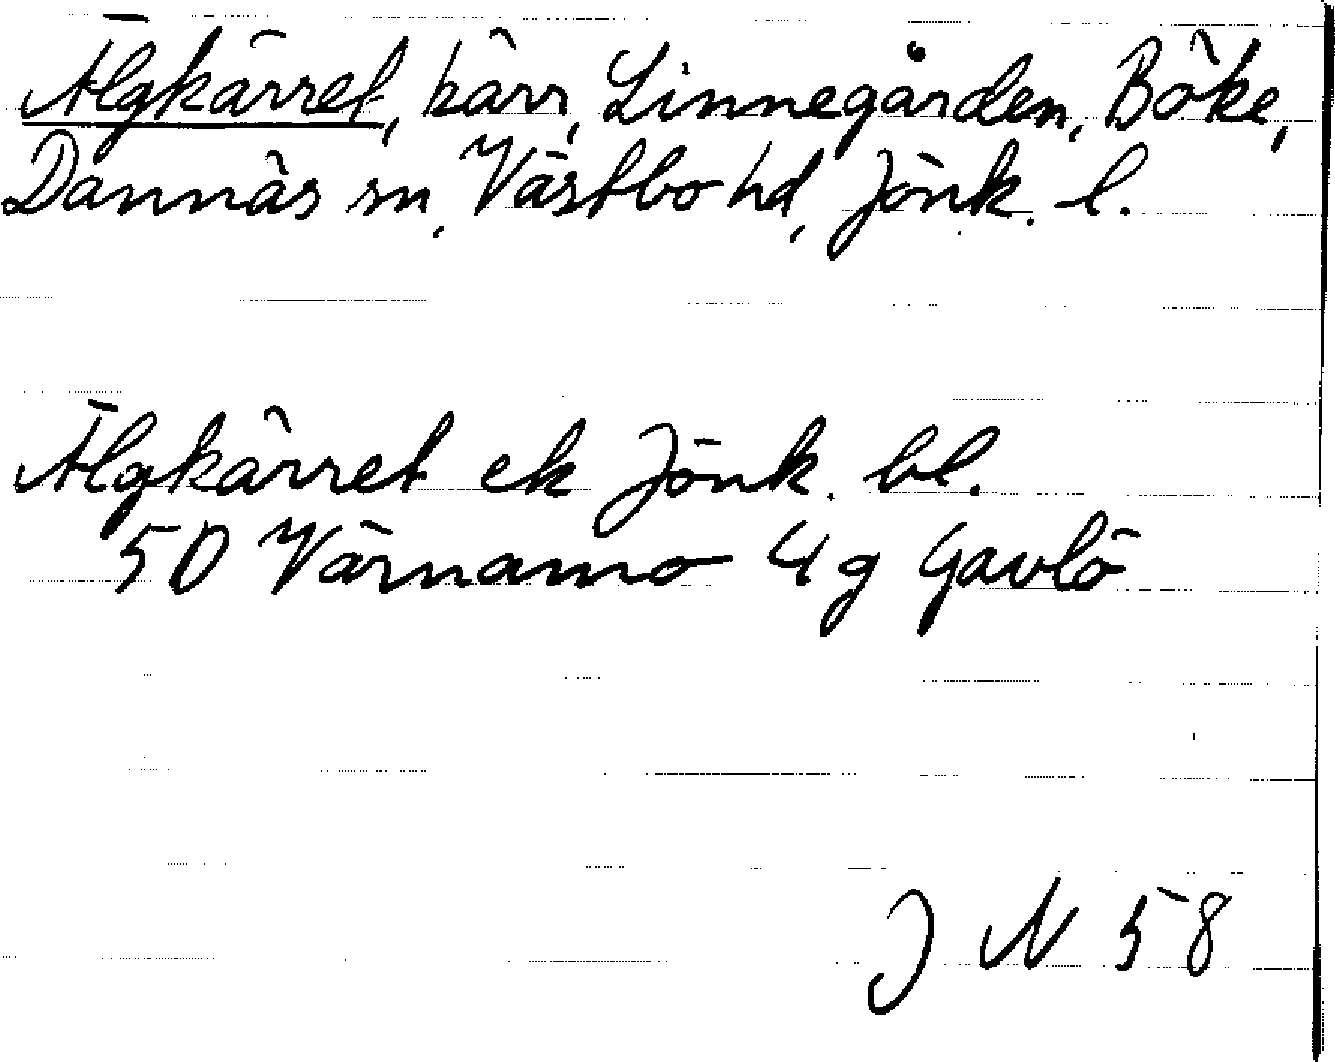 Älgkärret, kärr, Linnegården, Böke,
Dannäs sn, Västbo hd, Jönk. l.
Älgkärret ek Jönk. bl.
50 Värnamo 4g Gavlö
J N 58